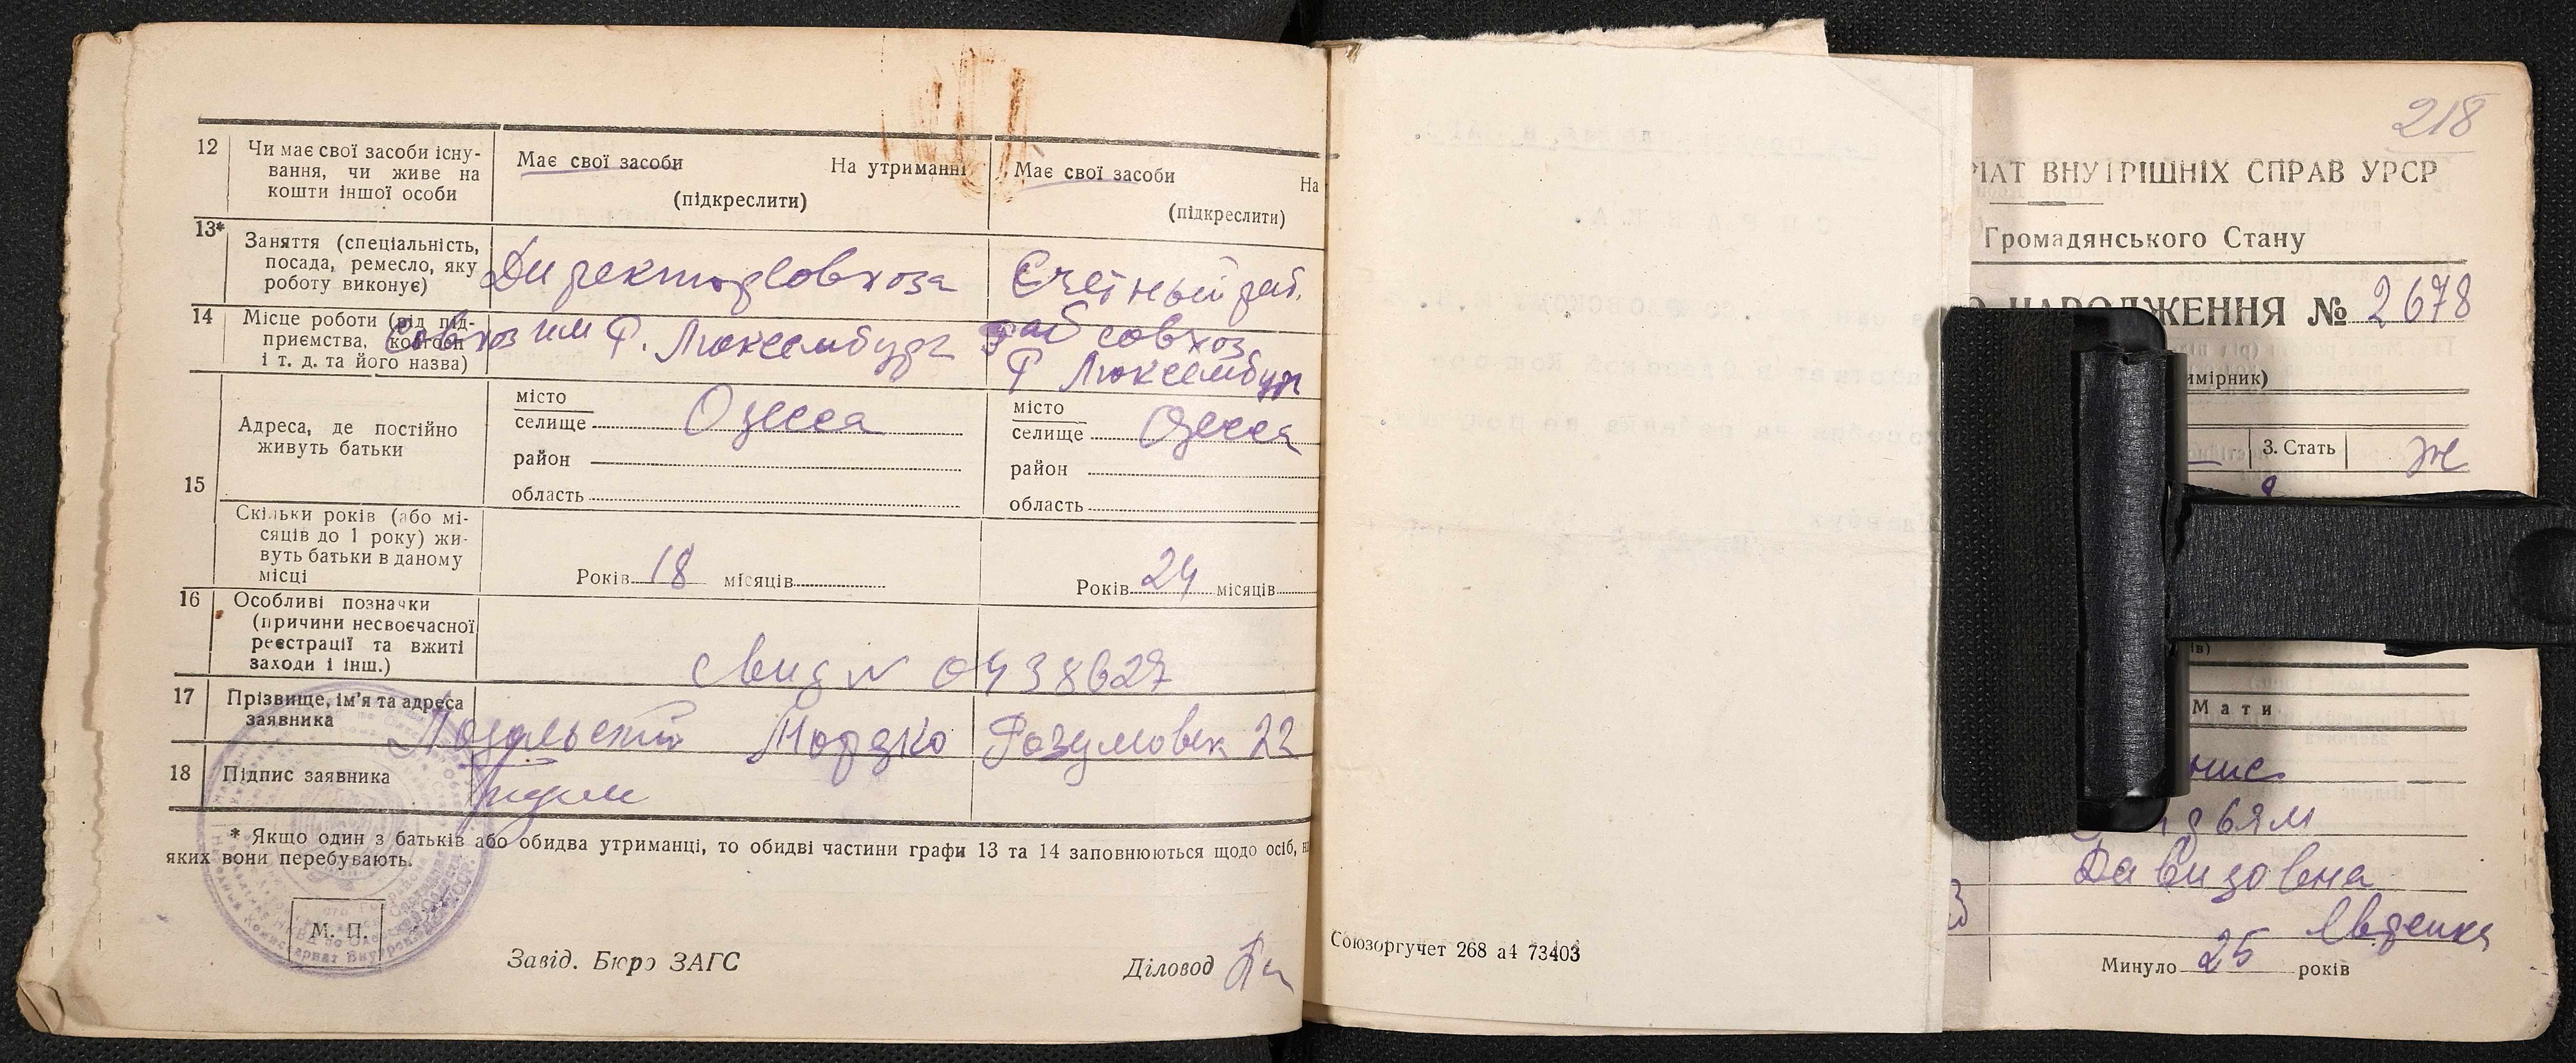 12 Чи має свої засоби існу-
вання, чи живе на
кошти іншої особи
Має свої засоби На утриманні
(підкреслити)
Має свої засоби На
(підкреслити)
13* Заняття (спеціальність,
посада, ремесло, яку
роботу виконує)
Директор совхоза
Счетный раб.
14 Місце роботи (рід під-
приємства, контори
і т. д. та його назва)
Совхоз им Р. Люксембург
раб совхоз
Р Люксембург
15 Адреса, де постійно
живуть батьки
місто
селище Одесса
район
область
місто
селище Одесса
район
область
Скільки років (або мі-
сяців до 1 року) жи-
вуть батьки в даному
місці
Років 18 місяців
Років 24 місяців
16 Особливі позначки
(причини несвоєчасної
реєстрації та вжиті
заходи і інш.)
свид N 0438627
17 Прізвище, ім'я та адреса
заявника
Подольский Мордко Розумовск 22
18 Підпис заявника
* Якщо один з батьків або обидва утриманці, то обидві частини графи 13 та 14 заповнюються щодо осіб, н
яких вони перебувають.
М. П.
Завід. Бюро ЗАГС
Діловод
Союзоргучет 268 а4 73403
218
РІАТ ВНУТРІШНІХ СПРАВ УРСР
Громадянського Стану
О НАРОДЖЕННЯ № 2678
имірник)
3. Стать ж
ів)
Мати
Давидовна
Минуло 25 років